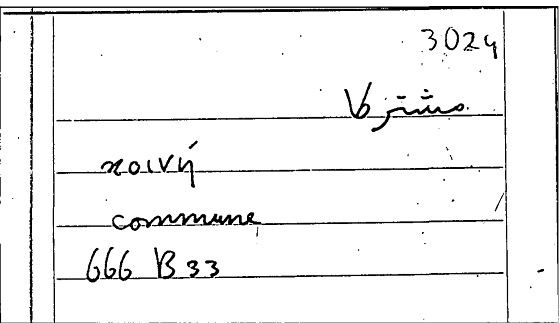 3024
مشتركا
κοινή
commune
666 B 33